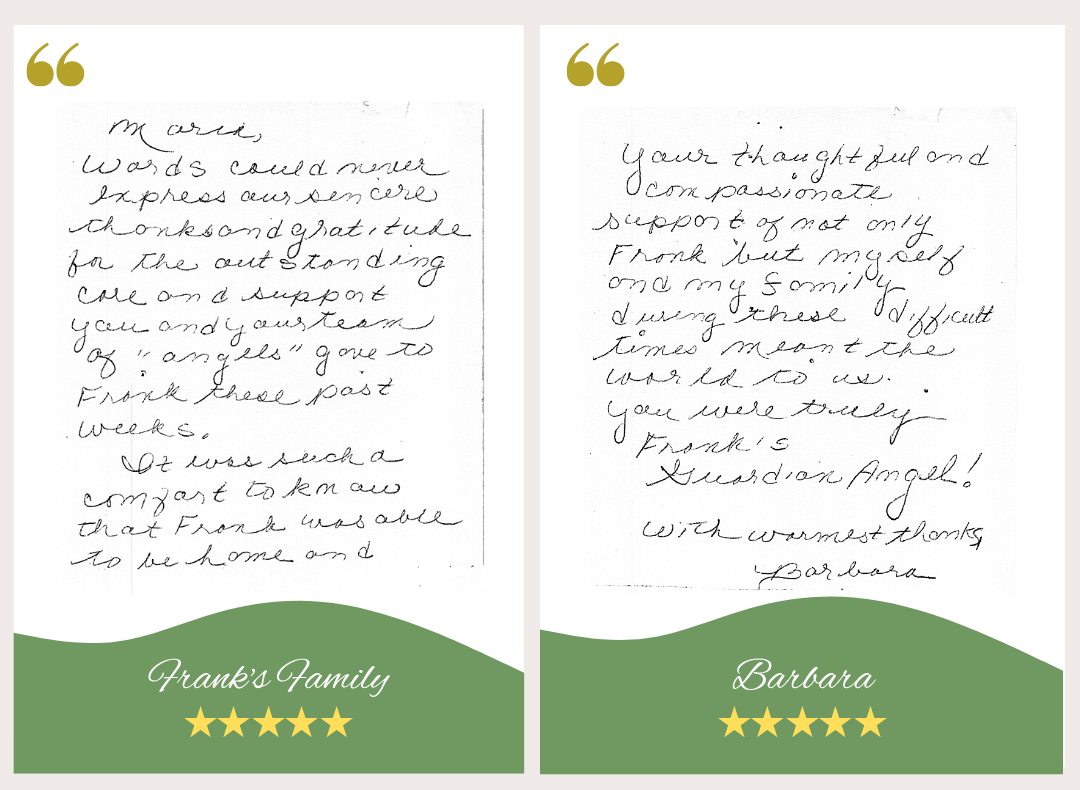 Maria,
Words could never
express our sincere
thanks and gratitude
for the outstanding
care and support
you and your team
of "angels" gave to
Frank these past
weeks.
It was such a
comfort to know
that Frank was able
to be home and
Frank's Family
Your thoughtful and
compassionate
support of not only
Frank but myself
and my family
during these difficult
times meant the
world to us.
You were truly
Frank's
Guardian Angel!
With warmest thanks,
Barbara
Barbara